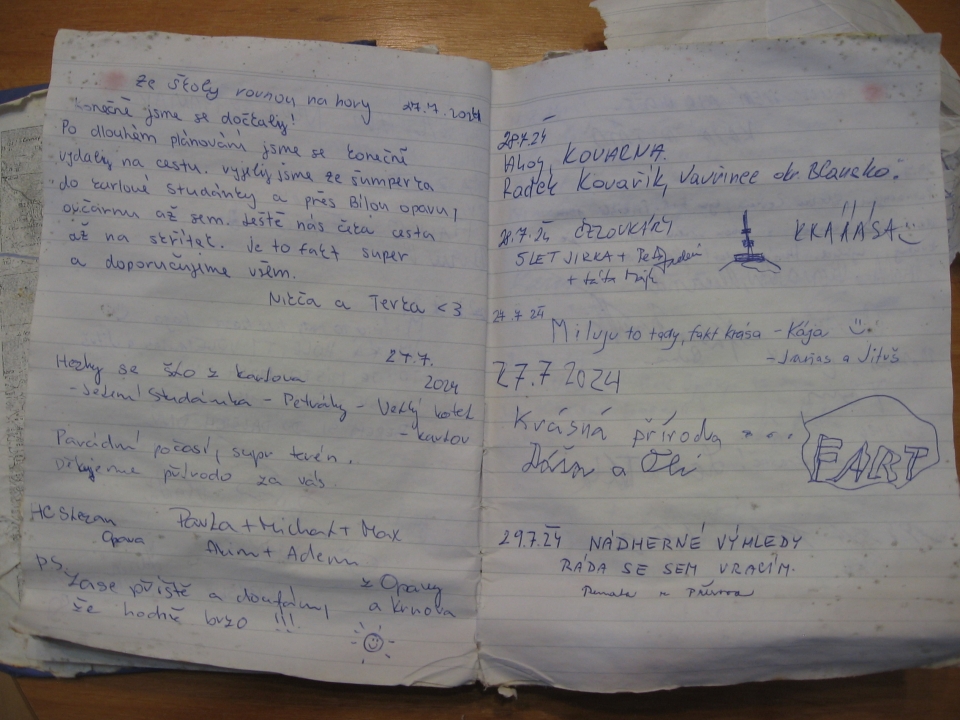 Ze školy rovnou na hory 27.7.2024
konečně jsme se dočkaly!
Po dlouhém plánování jsme se konečně
vydaly na cestu. vyjely jsme ze šumperka
do karlové studánky a přes Bílou opavu,
ovčárnu až sem. Ještě nás čeká cesta
až na skřítek. Je to fakt super
a doporučujeme všem.
Nikča a Terka <3
27.7.
2024
Hezky se šlo z karlova
- Jelení Studánka - Petráky - Velký kotel
- karlov
Parádní počasí, supr terén.
Děkujeme přírodo za vás.
Pavla + Michal + Max
Opava
+ Adem
z Opavy
a krnova
PS.
Zase příště a doufám,
že hodně brzo !!!
28.7.24
Ahoj, KOVARNA.
Radek Kovařík, Vavřinec okr. Blansko.
28.7.24
5 LET JIRKA +
KRÁÁÁSA
27.7.24
Miluju to tady, fakt krása - Kája
- a Jituš
27.7 2024
Krásná příroda ....
Dáša a
FART
29.7.24 NÁDHERNÉ VÝHLEDY
RÁDA SE SEM VRACÍM.